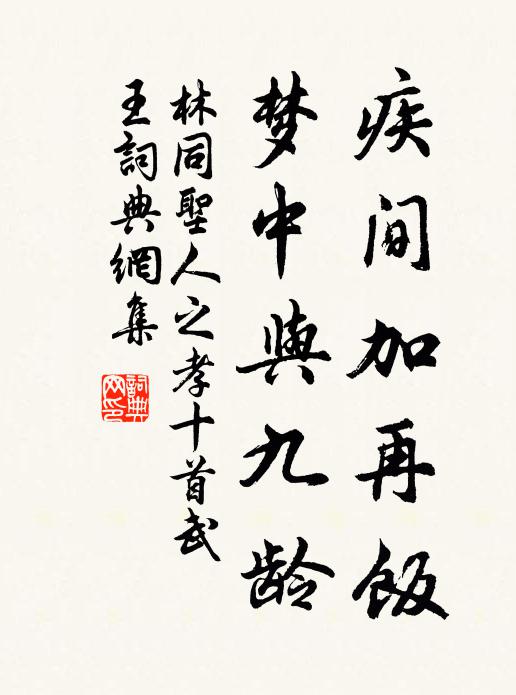 疾间加再饭
梦中與九龄
林同聖人之孝十首武
王詞典網集
詞典网印